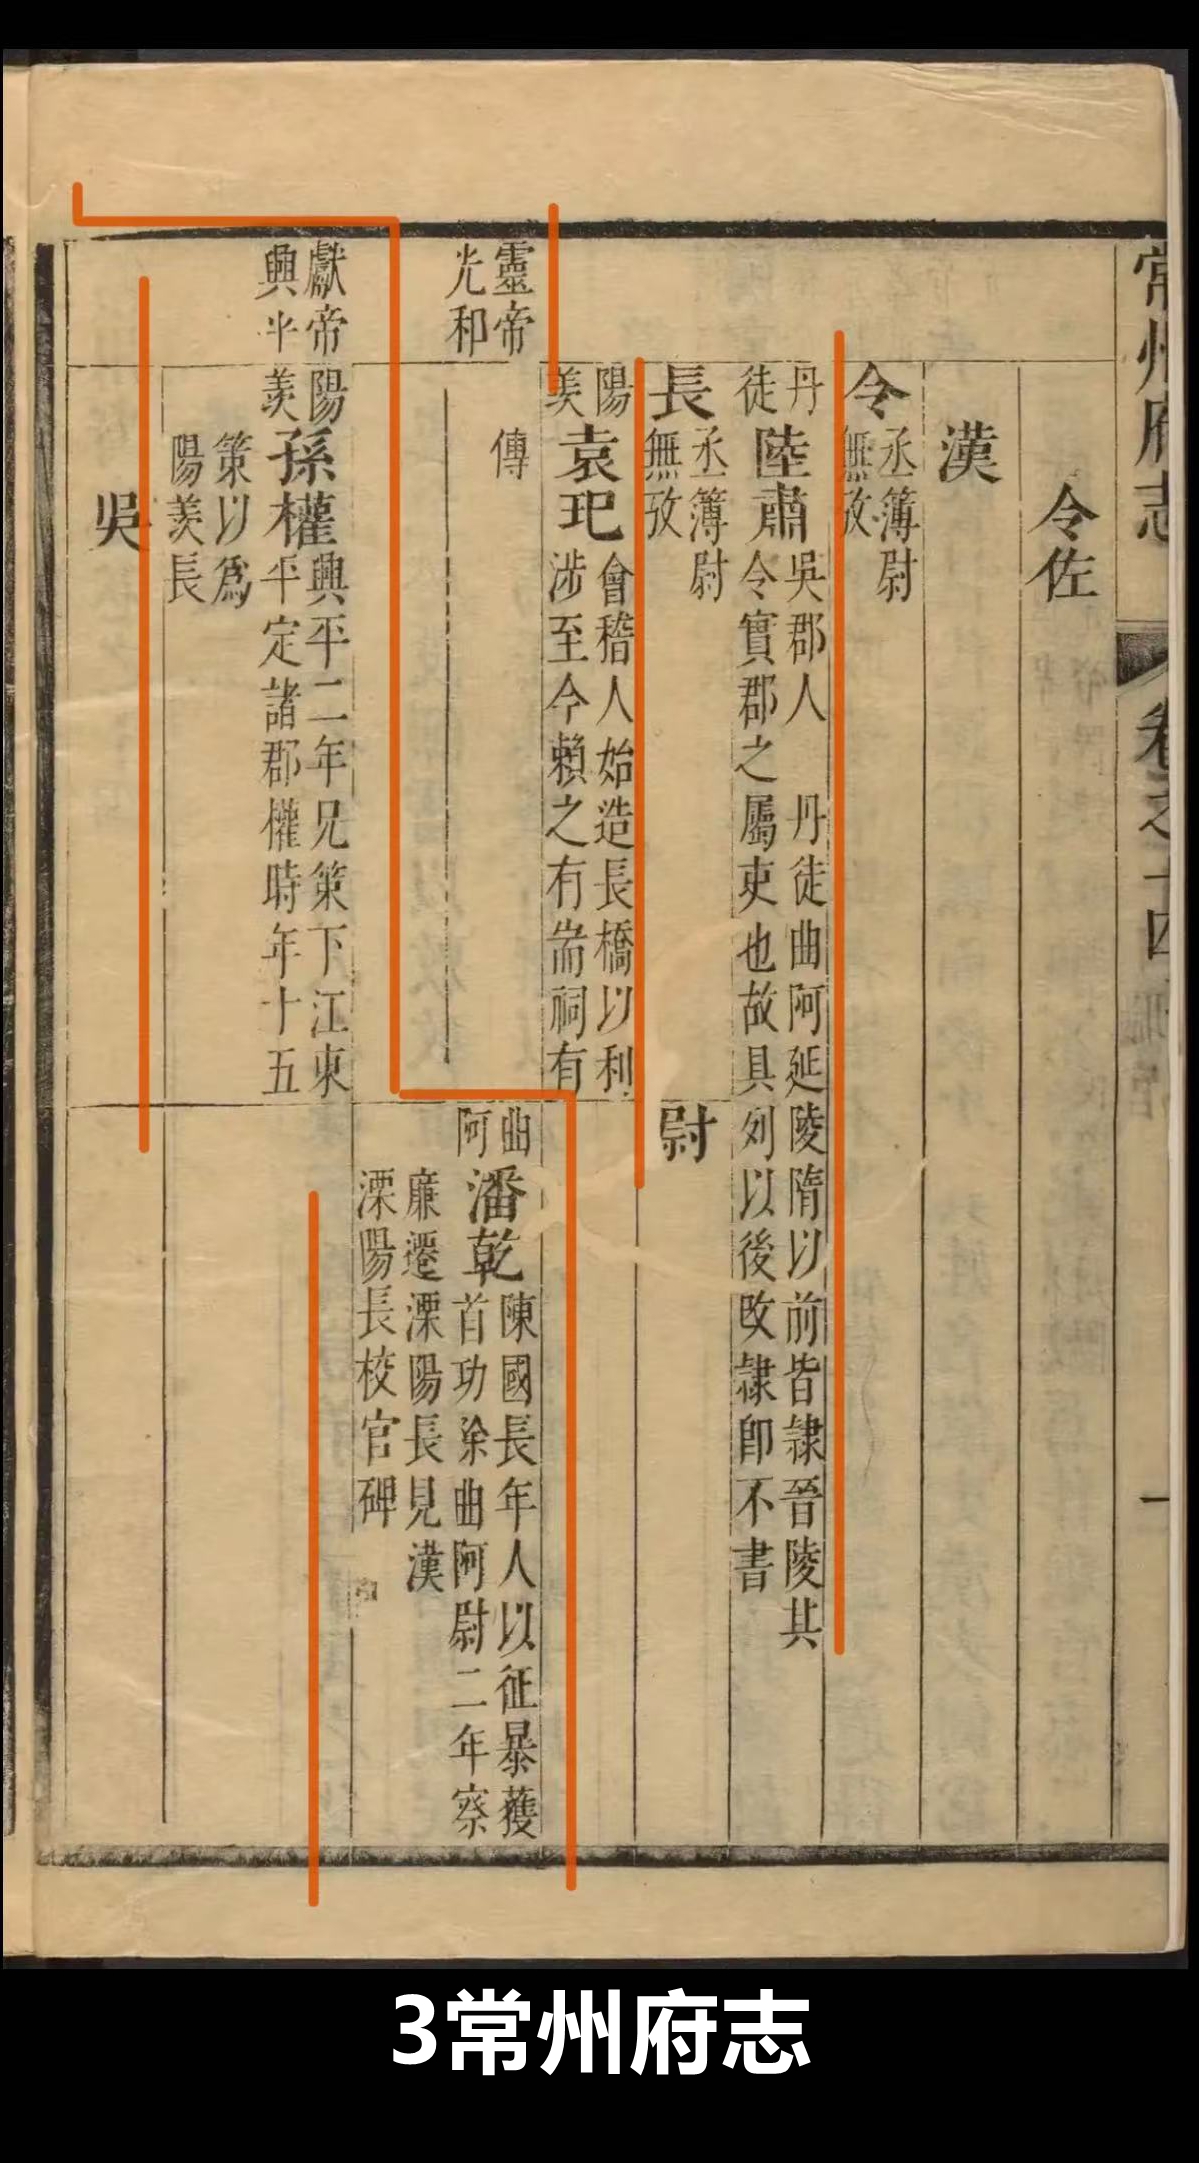 常州府志
卷之十四
一
令佐
漢
令丞簿尉
無攷
丹徒陸肅吳郡人 丹徒曲阿延陵隋以前皆隷晉陵其
令實郡之屬吏也故具列以後改隷卽不書
長丞簿尉
無攷
尉
陽羨袁玘會稽人始造長橋以利
涉至今賴之有耑祠有
傳
靈帝
光和
曲阿潘乾陳國長年人以征暴獲
首功除曲阿尉二年察
廉遷溧陽長見漢
溧陽長校官碑
獻帝
興平
陽羨孫權興平二年兄策下江東
平定諸郡權時年十五
策以爲
陽羨長
吳
3常州府志